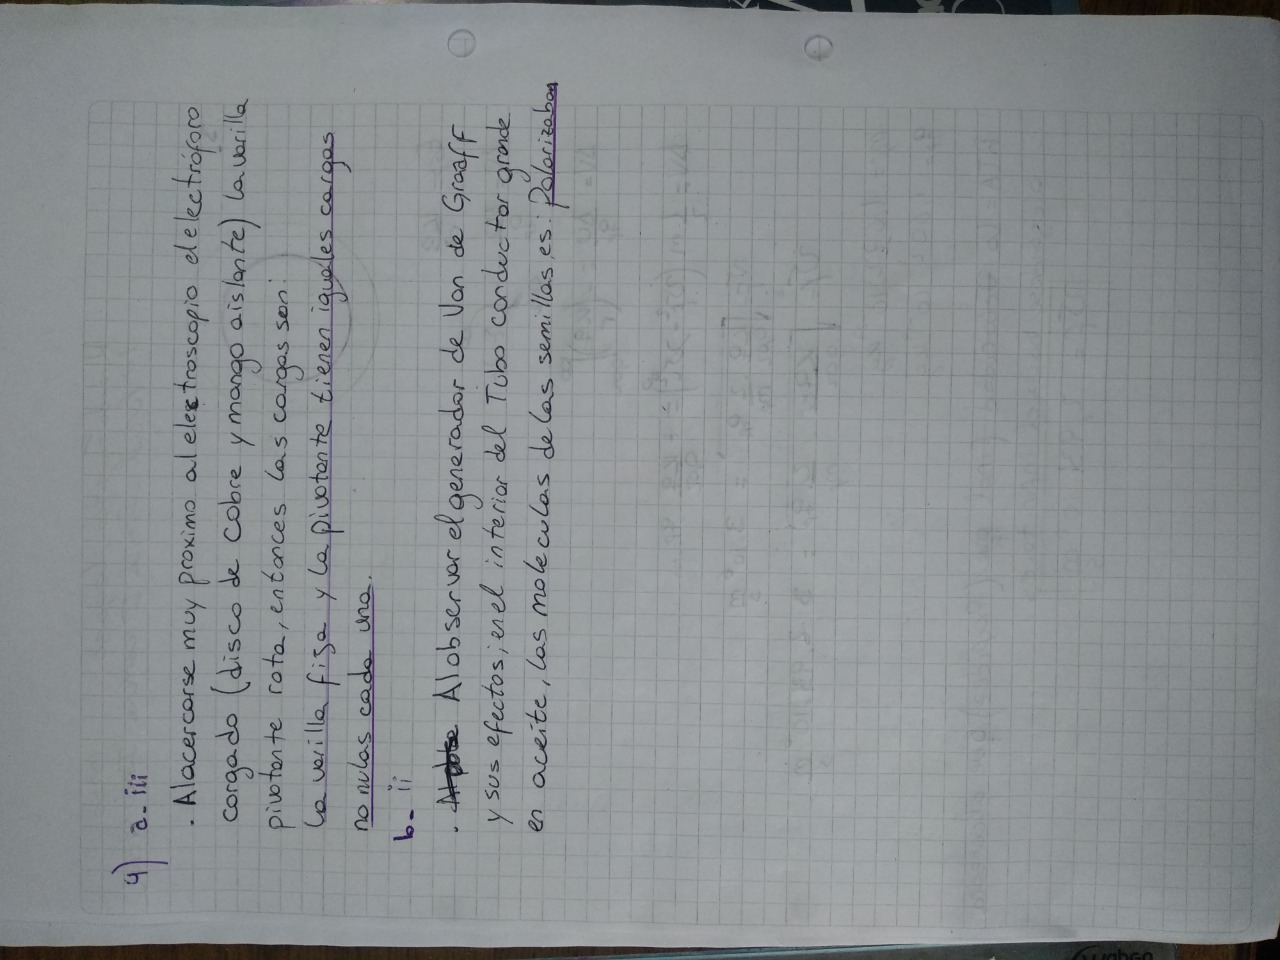 4) a- iii
. Al acercarse muy proximo al electroscopio el electróforo
cargado (disco de cobre y mango aislante) la varilla
pivotante rota, entonces las cargas son:
La varilla fija y la pivotante tienen iguales cargas
no nulas cada una.
b- ii
. Al observar el generador de Van de Graaff
y sus efectos; en el interior del Tubo conductor grande
en aceite, las moleculas de las semillas es: Polarizaban